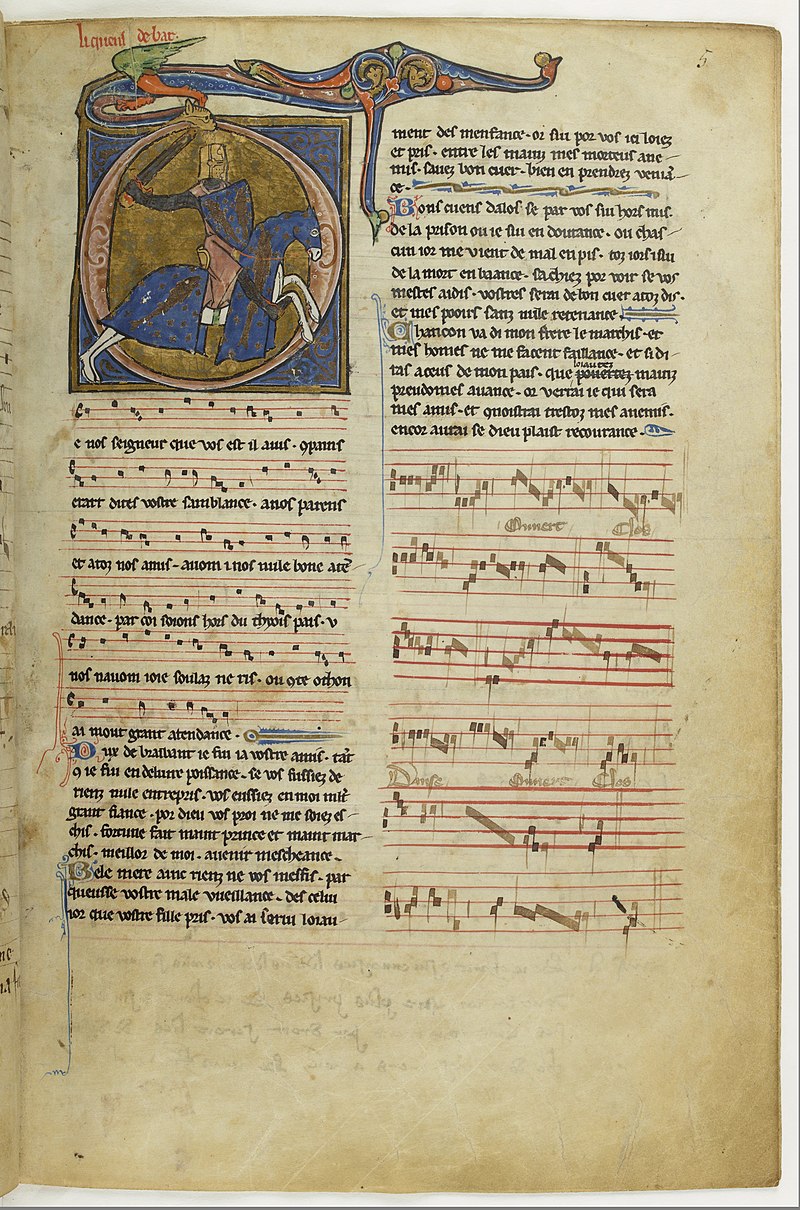 li quens de bar.
5
e nos seigneur que vos est il auis. 9panis
et art dites vostre samblance. a nos parens
et atoz nos amis. auom i nos nule bone atē
dance. par coi soions hors du thyois pais. v
nos nauom ioie soulaz ne ris. ou 9te othon
ai mout grant atendance.
Dux de braibant ie fui ia vostre amis. tāt
9 ie fui en deliure poissance. se vos fussiez de
riens nule entrepris. vos eussiez en moi mlt
grant fiance. por dieu vos proi ne me soiez es
chis. fortune fait maint prince et maint mar
chis. meillor de moi. auenir mescheance.
Bele mere ainc riens ne vos meffis. par
queusse vostre male vueillance. des celui
ior que vostre fille pris. vos ai serui loiau
ment des menfance. or sui por vos ici loiez
et pris. entre les mains mes morteus ane
mis. sauez bon cuer. bien en prendrez veniā
ce.
Bons cuens dalos se par vos sui hors mis.
de la prison ou ie sui en doutance. ou chas
cun ior me vient de mal en pis. toz iors i sui
de la mort en baance. sachiez por voir se vos
mestes aidis. vostres serai de bon cuer a toz dis.
et mes pooirs sanz nule retenance.
Chancon va di mon frere le marchis. et
mes homes ne me facent faillance. et si di
ras a ceus de mon pais. que loiautez pouertez mainz
preudomes auance. or verrai ie qui sera
mes amis. et quoistrai trestoz mes anemis.
encor aurai se dieu plaist recourance.
Ouuert Clos
Danse Ouuert Clos